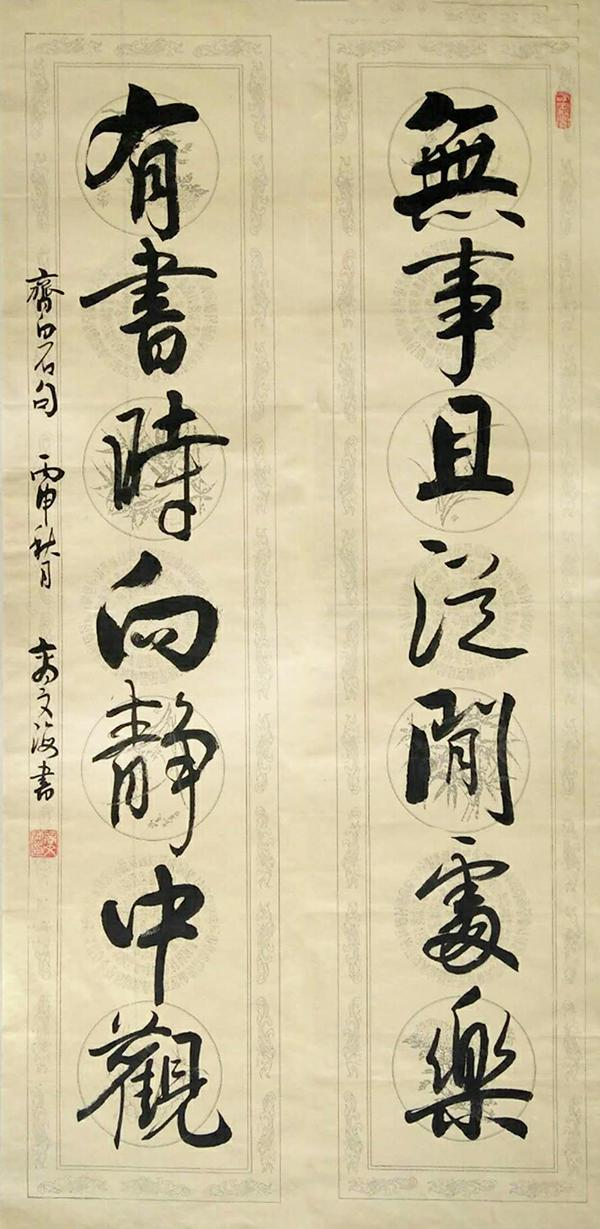 無事且從閒處樂
有書時向靜中觀
齊白石句 丙申秋月 文海書